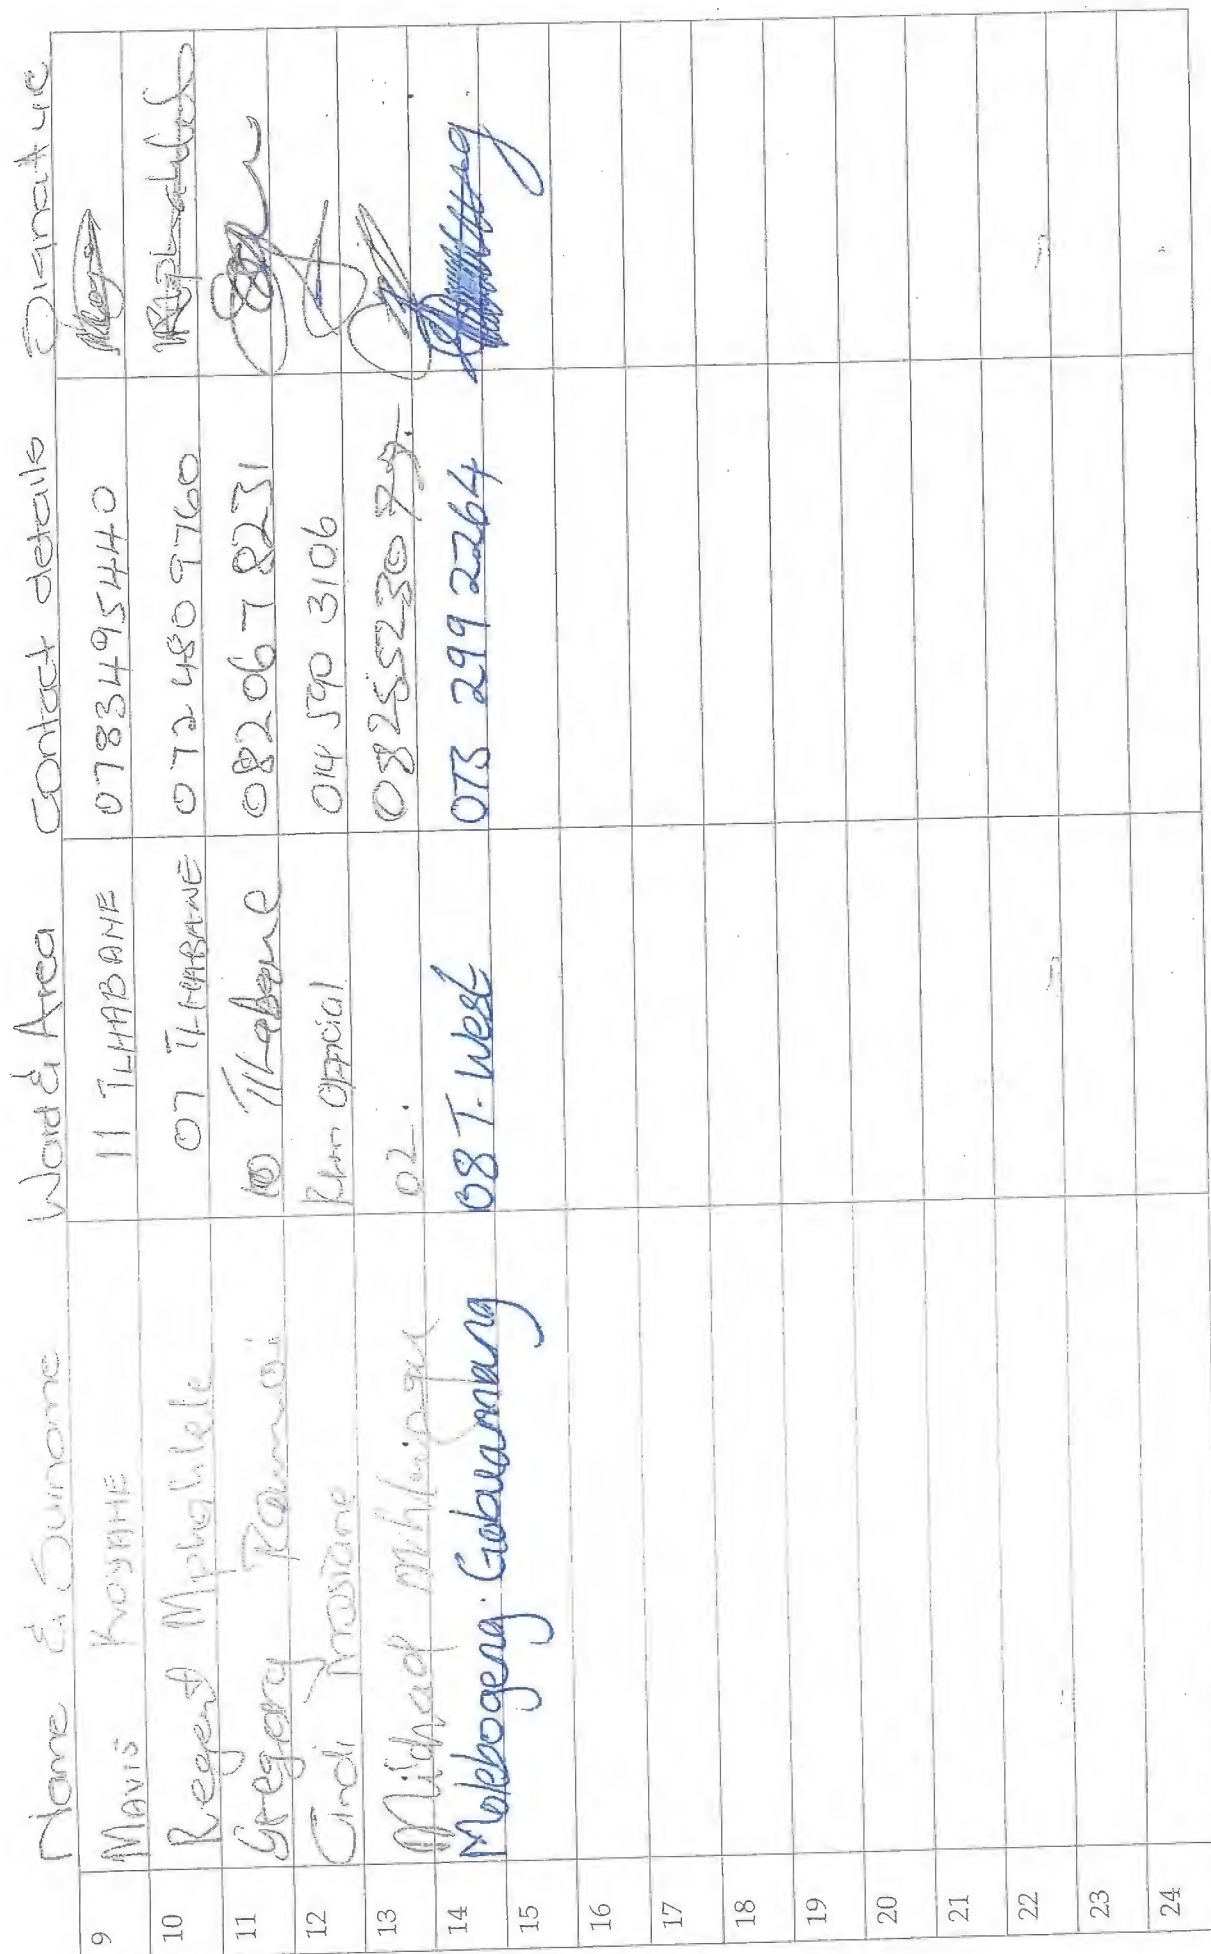 Name & Surname Ward & Area Contact details Signature
9 MAVIS KOYANE 11 TLHABANE 0783495440
10 Regent Mphahlele 07 TLHABANE 072 480 9760
11 Gregory 10 Tlhabane 082 067 8231
12 Cindi Mosiane RLM Official 014 590 3106
13 Michael 02.
14 Malebogeng. Gabuamang 08 T. West 073 299 2264
15
16
17
18
19
20
21
22
23
24